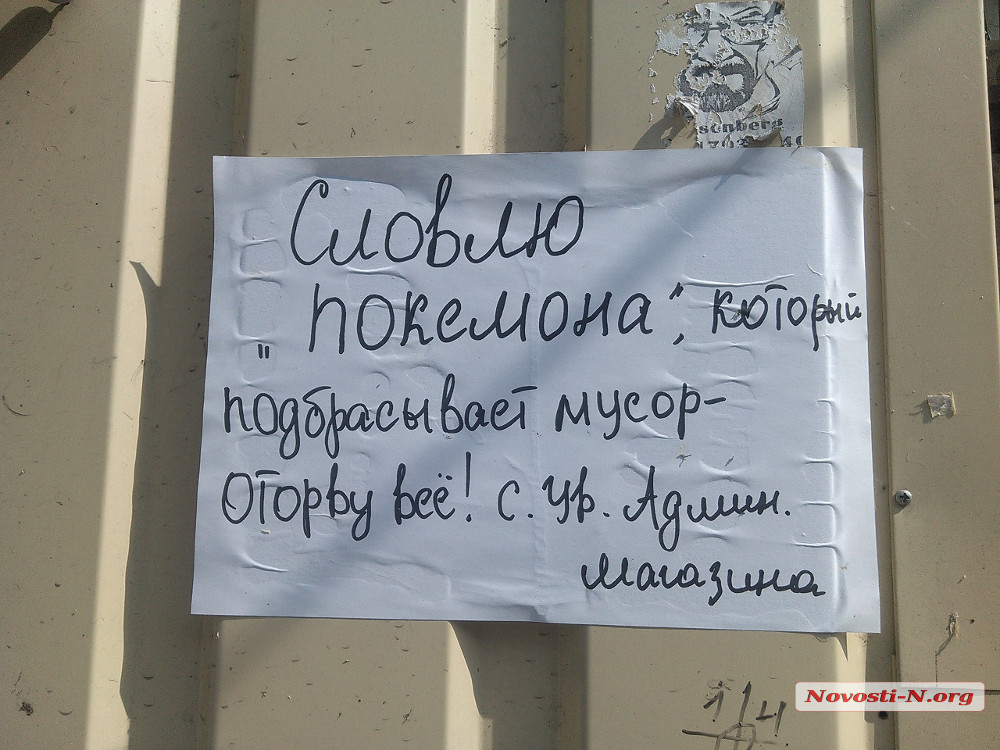 senberg
Словлю
„покемона", который
подбрасывает мусор-
оторву всё! с. ув. Админ.
магазина
1/4
Novosti-N.org